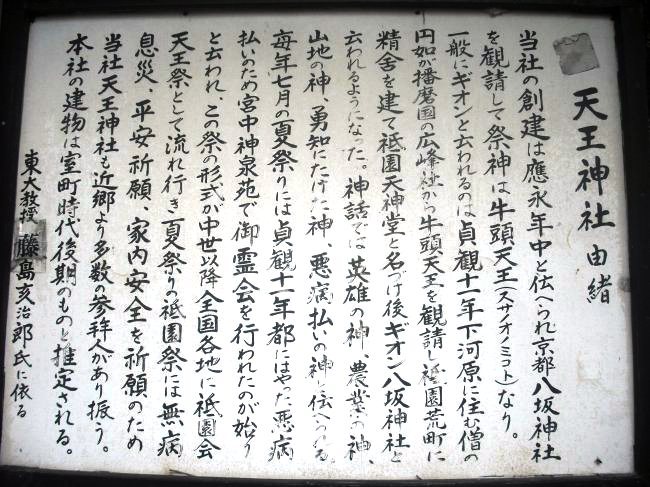 天王神社 由緒
当社の創建は應永年中と伝へられ京都八坂神社
を観請して祭神は牛頭天王(スサノオノミコト)なり。
一般にギオンと云われるのは貞観十一年下河原に住む僧の
円如が播磨国の広峰社から牛頭天王を観請し祗園荒町に
精舎を建て祗園天神堂と名づけ後ギオン八坂神社と
云われるようになった。神話では英雄の神、農業の神、
山地の神、勇知にたけた神、悪病払いの神と伝
毎年七月の夏祭りには貞観十一年都にはやった悪病
払いのため宮中神泉苑で御霊会を行われたのが始り
と云われ、この祭の形式が中世以降全国各地に祗園会
天王祭として流れ行き夏祭りの祗園祭には無病
息災、平安祈願、家内安全を祈願のため
当社天王神社も近郷より多数の参拝人があり振う。
本社の建物は室町時代後期のものと推定される。
東大教授 藤島亥治郎氏に依る